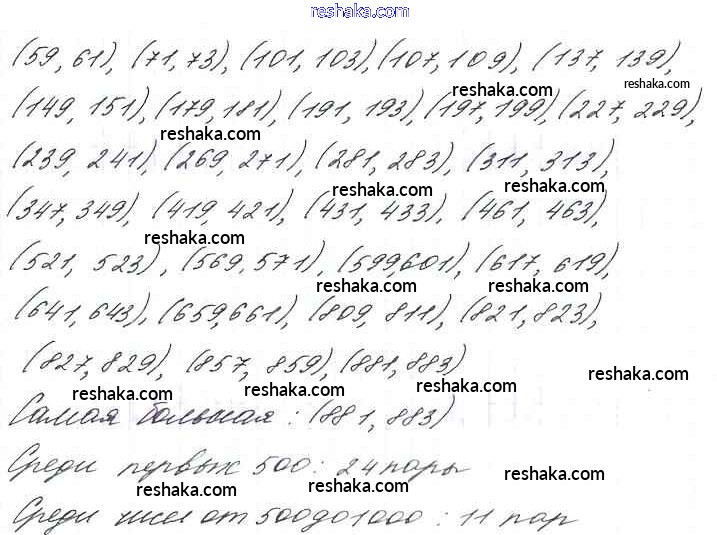 reshaka.com
(59, 61), (71, 73), (101, 103), (107, 109), (137, 139),
reshaka.com reshaka.com
(149, 151), (179, 181), (191, 193), (197, 199), (227, 229),
reshaka.com reshaka.com
(239, 241), (269, 271), (281, 283), (311, 313),
reshaka.com reshaka.com
(347, 349), (419, 421), (431, 433), (461, 463),
reshaka.com
(521, 523), (569, 571), (599, 601), (617, 619),
reshaka.com reshaka.com
(641, 643), (659, 661), (809, 811), (821, 823),
(827, 829), (857, 859), (881, 883)
reshaka.com reshaka.com reshaka.com reshaka.com
Самая большая: (881, 883)
Среди первых 500: 24 пары
reshaka.com reshaka.com reshaka.com
Среди чисел от 500 до 1000: 11 пар